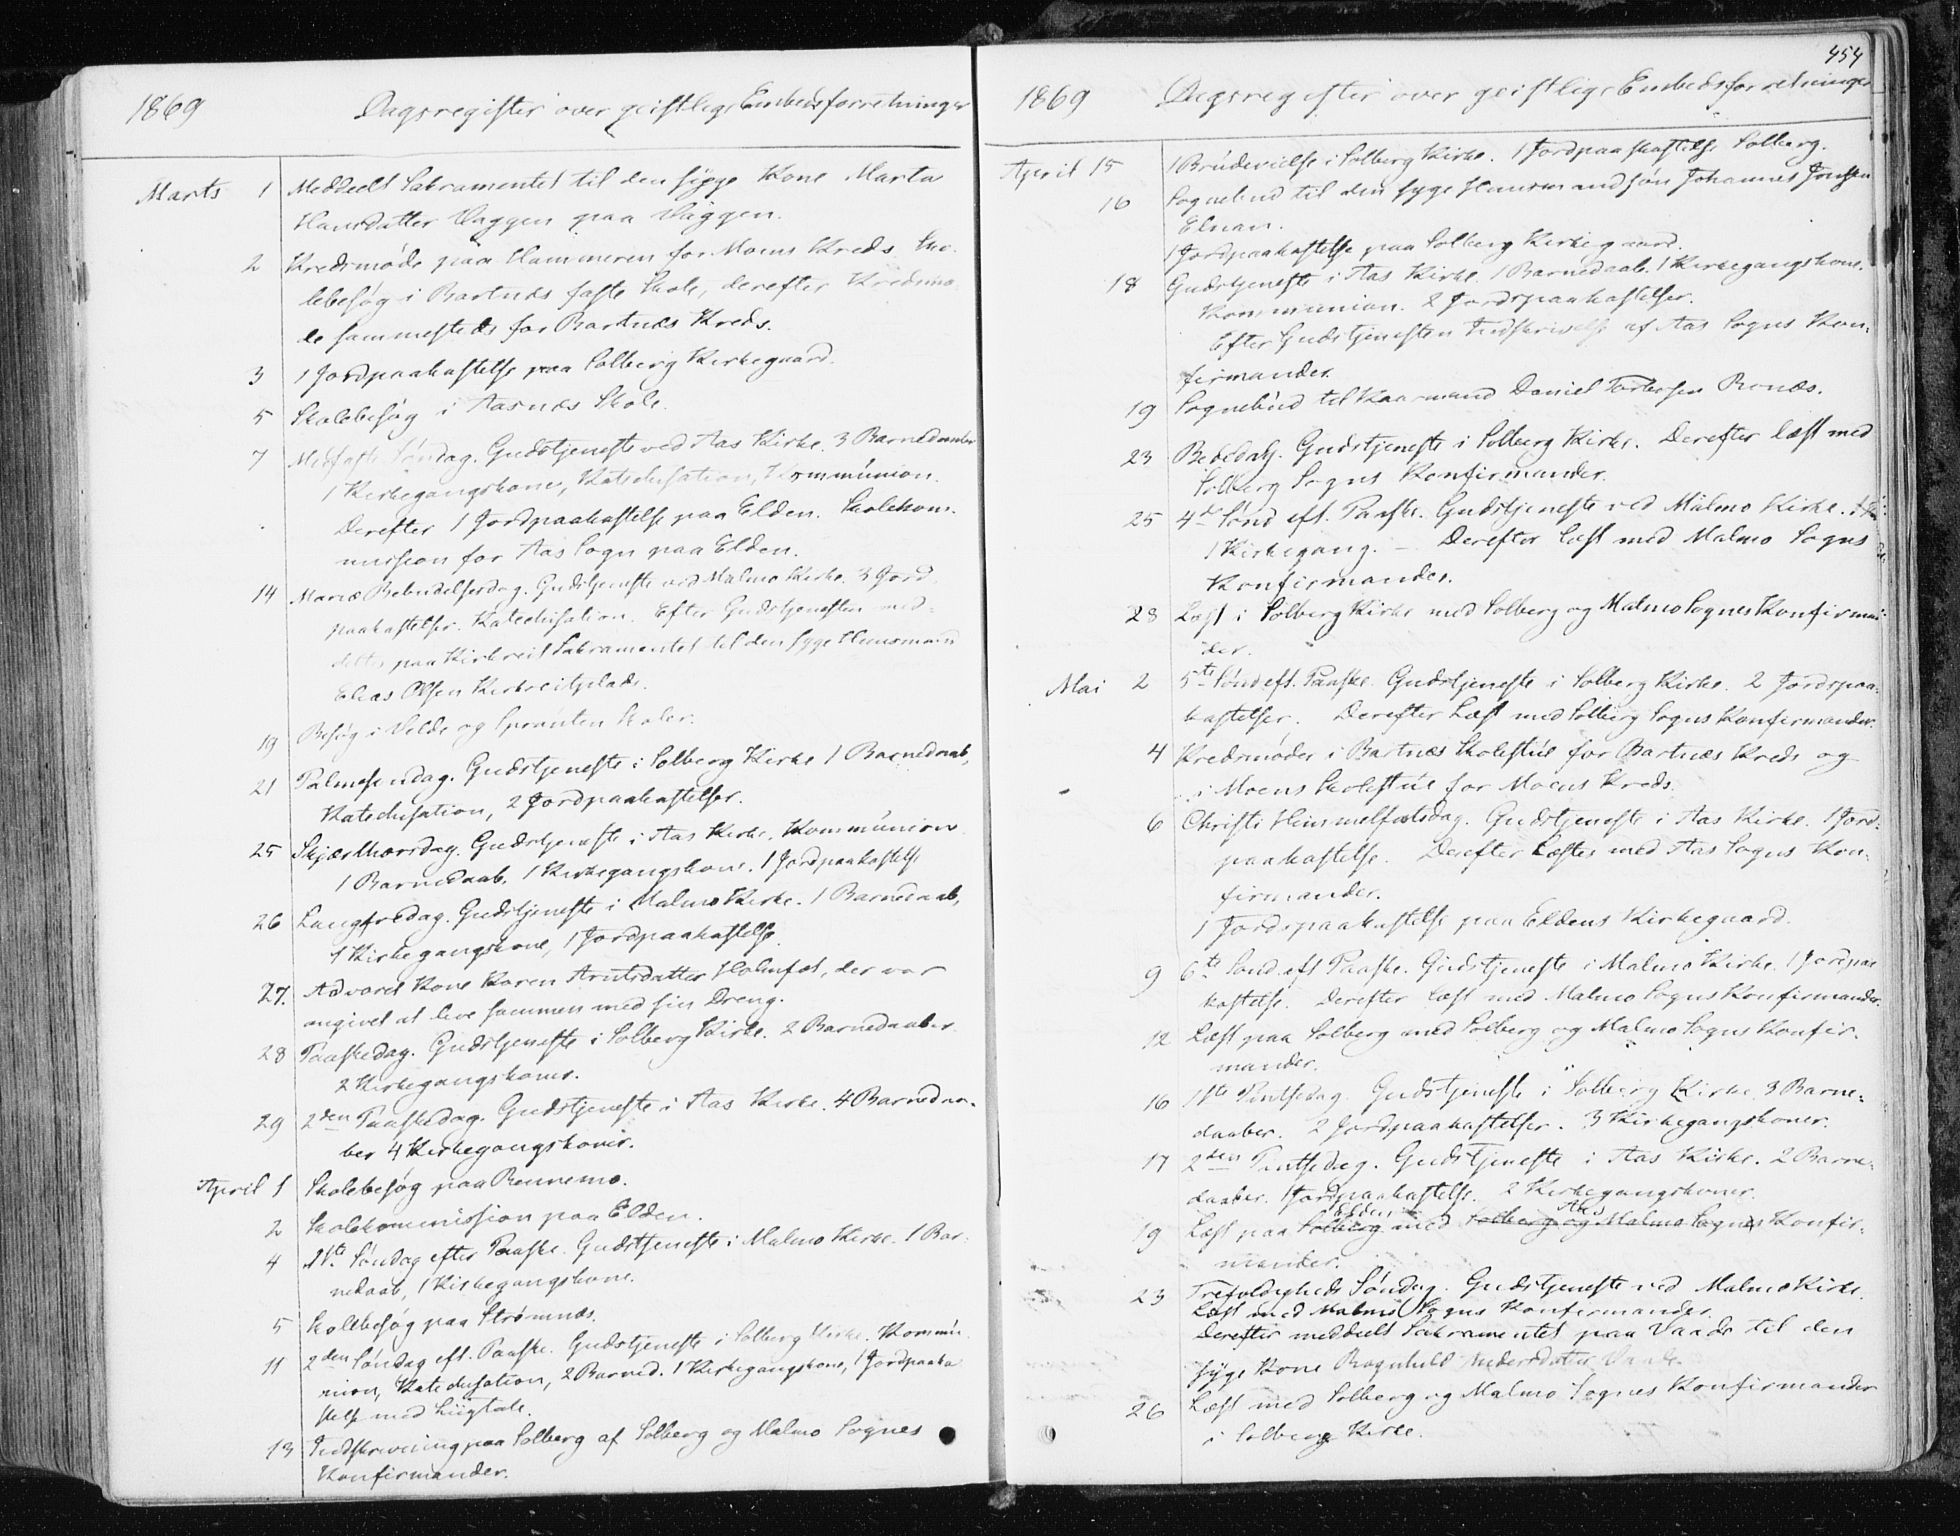 1869 Dagsregister over geistlige Embedsforretninger
Marts 1 Meddeelt Sakramentet til den syge Kone Marta
Hansdatter Vaggen paa Vaggen.
2 Kredsmøde paa Hammeren for Moens Kreds. Sko-
lebesøg i Bartnæs faste Skole, derefter Kredsmø-
de sammesteds for Bartnæs Kreds.
3 1 Jordpaakastelse paa Solberg Kirkegaard.
5 Skolebesøg i Aasnæs Skole.
7 Midfaste Søndag. Gudstjeneste ved Aas Kirke. 3 Barnedaaber
1 Kirkegangskone, Katechisation, Kommúnion.
Derefter 1 Jordpaakastelse paa Elden. Skolekom-
mission for Aas Sogn paa Elden.
14 Mariæ Bebudelsesdag. Gudstjeneste ved Malmo Kirke. 3 Jord-
paakastelser. Katechisation. Efter Gudstjenesten med-
deltes paa Kirkreit Sakramentet til den syge Huusmand
Elias Olsen Kirkreitplads.
19 Besøg i Velde og Sprauten Skoler.
21 Palmesøndag. Gudstjeneste i Solberg Kirke 1 Barnedaab,
Katechisation, 2 Jordpaakastelser.
25 Skjærthorsdag. Gudstjeneste i Aas Kirke. Kommúnion
1 Barnedaab, 1 Kirkegangskone. 1 Jordpaakastelse
26 Langfredag. Gudstjeneste i Malmo Kirke. 1 Barnedaab,
1 Kirkegangskone, 1 Jordpaakastelse.
27. Advaret Kone Karen Arntsdatter Holmset, der var
angivet at leve sammen med sin Dreng.
28 Paaskedag. Gudstjeneste i Solberg Kirke. 2 Barnedaaber.
2 Kirkegangskoner.
29 2den Paaskedag. Gudstjeneste i Aas Kirke. 4 Barnedaa-
ber 4 Kirkegangskoner.
April 1 Skolebesøg paa Rennemo.
2 Skolekommission paa Elden.
4 1ste Søndag efter Paaske. Gudstjeneste i Malmo Kirke. 1 Bar-
nedaab, 1 Kirkegangskone.
5 Skolebesøg paa Strømnæs.
11 2den Søndag eft. Paaske. Gudstjeneste i Solberg Kirke. Kommú-
nion, Katechisation, 2 Barned. 1 Kirkegangskone, 1 Jordpaaka
stelse med Liigtale.
13 Indskrivning paa Solberg af Solberg og Malmo Sognes
Konfirmander.
454
1869 Dagsregister over geistlige Embedsforretninger
April 15 1 Brúdevielse i Solberg Kirke. 1 Jordpaakastelse Solberg.
16 Sognebud til den syge Huusmandssøn Johannes Jonsen
Elnan.
1 Jordpaakastelse paa Solberg Kirkegaard.
18 Gudstjeneste i Aas Kirke. 1 Barnedaab. 1 Kirkegangskone.
Kommunion. 2 Jordspaakastelser.
Efter Gudstjenesten Indskrivelse af Aas Sogns Kon-
firmander.
19 Sognebud til Kaarmand Daniel Torbersen Bonæs.
23 Bededag. Gudstjeneste i Solberg Kirke. Derefter læst med
Solberg Sogns Konfirmander.
25 4de Sønd eft. Paaske. Gudstjeneste ved Malmo Kirke.
1 Kirkegang. — Derefter læst med Malmo Sogns
Konfirmander.
28 Læst i Solberg Kirke med Solberg og Malmo Sognes Konfirman-
der.
Mai 2 5te Sønd eft. Paaske. Gudstjeneste i Solberg Kirke. 2 Jordspaa-
kastelser. Derefter Læst med Solberg Sogns Konfirmander.
4 Kredsmøder i Bartnæs Skolestúe for Bartnæs Kreds og
i Moens Skolestúe for Moens Kreds.
6 Christi Himmelfartsdag. Gudstjeneste i Aas Kirke. 1 Jord-
paakastelse. Derefter Læstes med Aas Sogns Kon-
firmander.
1 Jordspaakastelse paa Eldens Kirkegaard.
9 6te Sønd. eft Paaske. Gudstjeneste i Malmo Kirke. 1 Jordpaa
kastelse. Derefter læst med Malmo Sogns Konfirmander.
12 Læst paa Solberg med Solberg og Malmo Sogns Konfir-
mander.
16 1ste Pintsedag. Gudstjeneste i Solberg Kirke 3 Barne-
daaber. 2 Jordpaakastelser. 3 Kirkegangskoner.
17 2den Pintsedag. Gudstjeneste i Aas Kirke. 2 Barne-
daaber. 1 Jordpaakastelse. 2 Kirkegangskoner.
Elden Aas
19 Læst paa Solberg med Solberg og Malmo Sognes Konfir-
mander.
23 Trefoldigheds Søndag. Gudstjeneste ved Malmo Kirke.
Læst med Malmo Sogns Konfirmander.
Derefter meddeelt Sakramentet paa Vaade til den
syge Kone Ragnhild Andersdatter Vaade.
26 Læst med Solberg og Malmo Sognes Konfirmander
i Solberg Kirke.